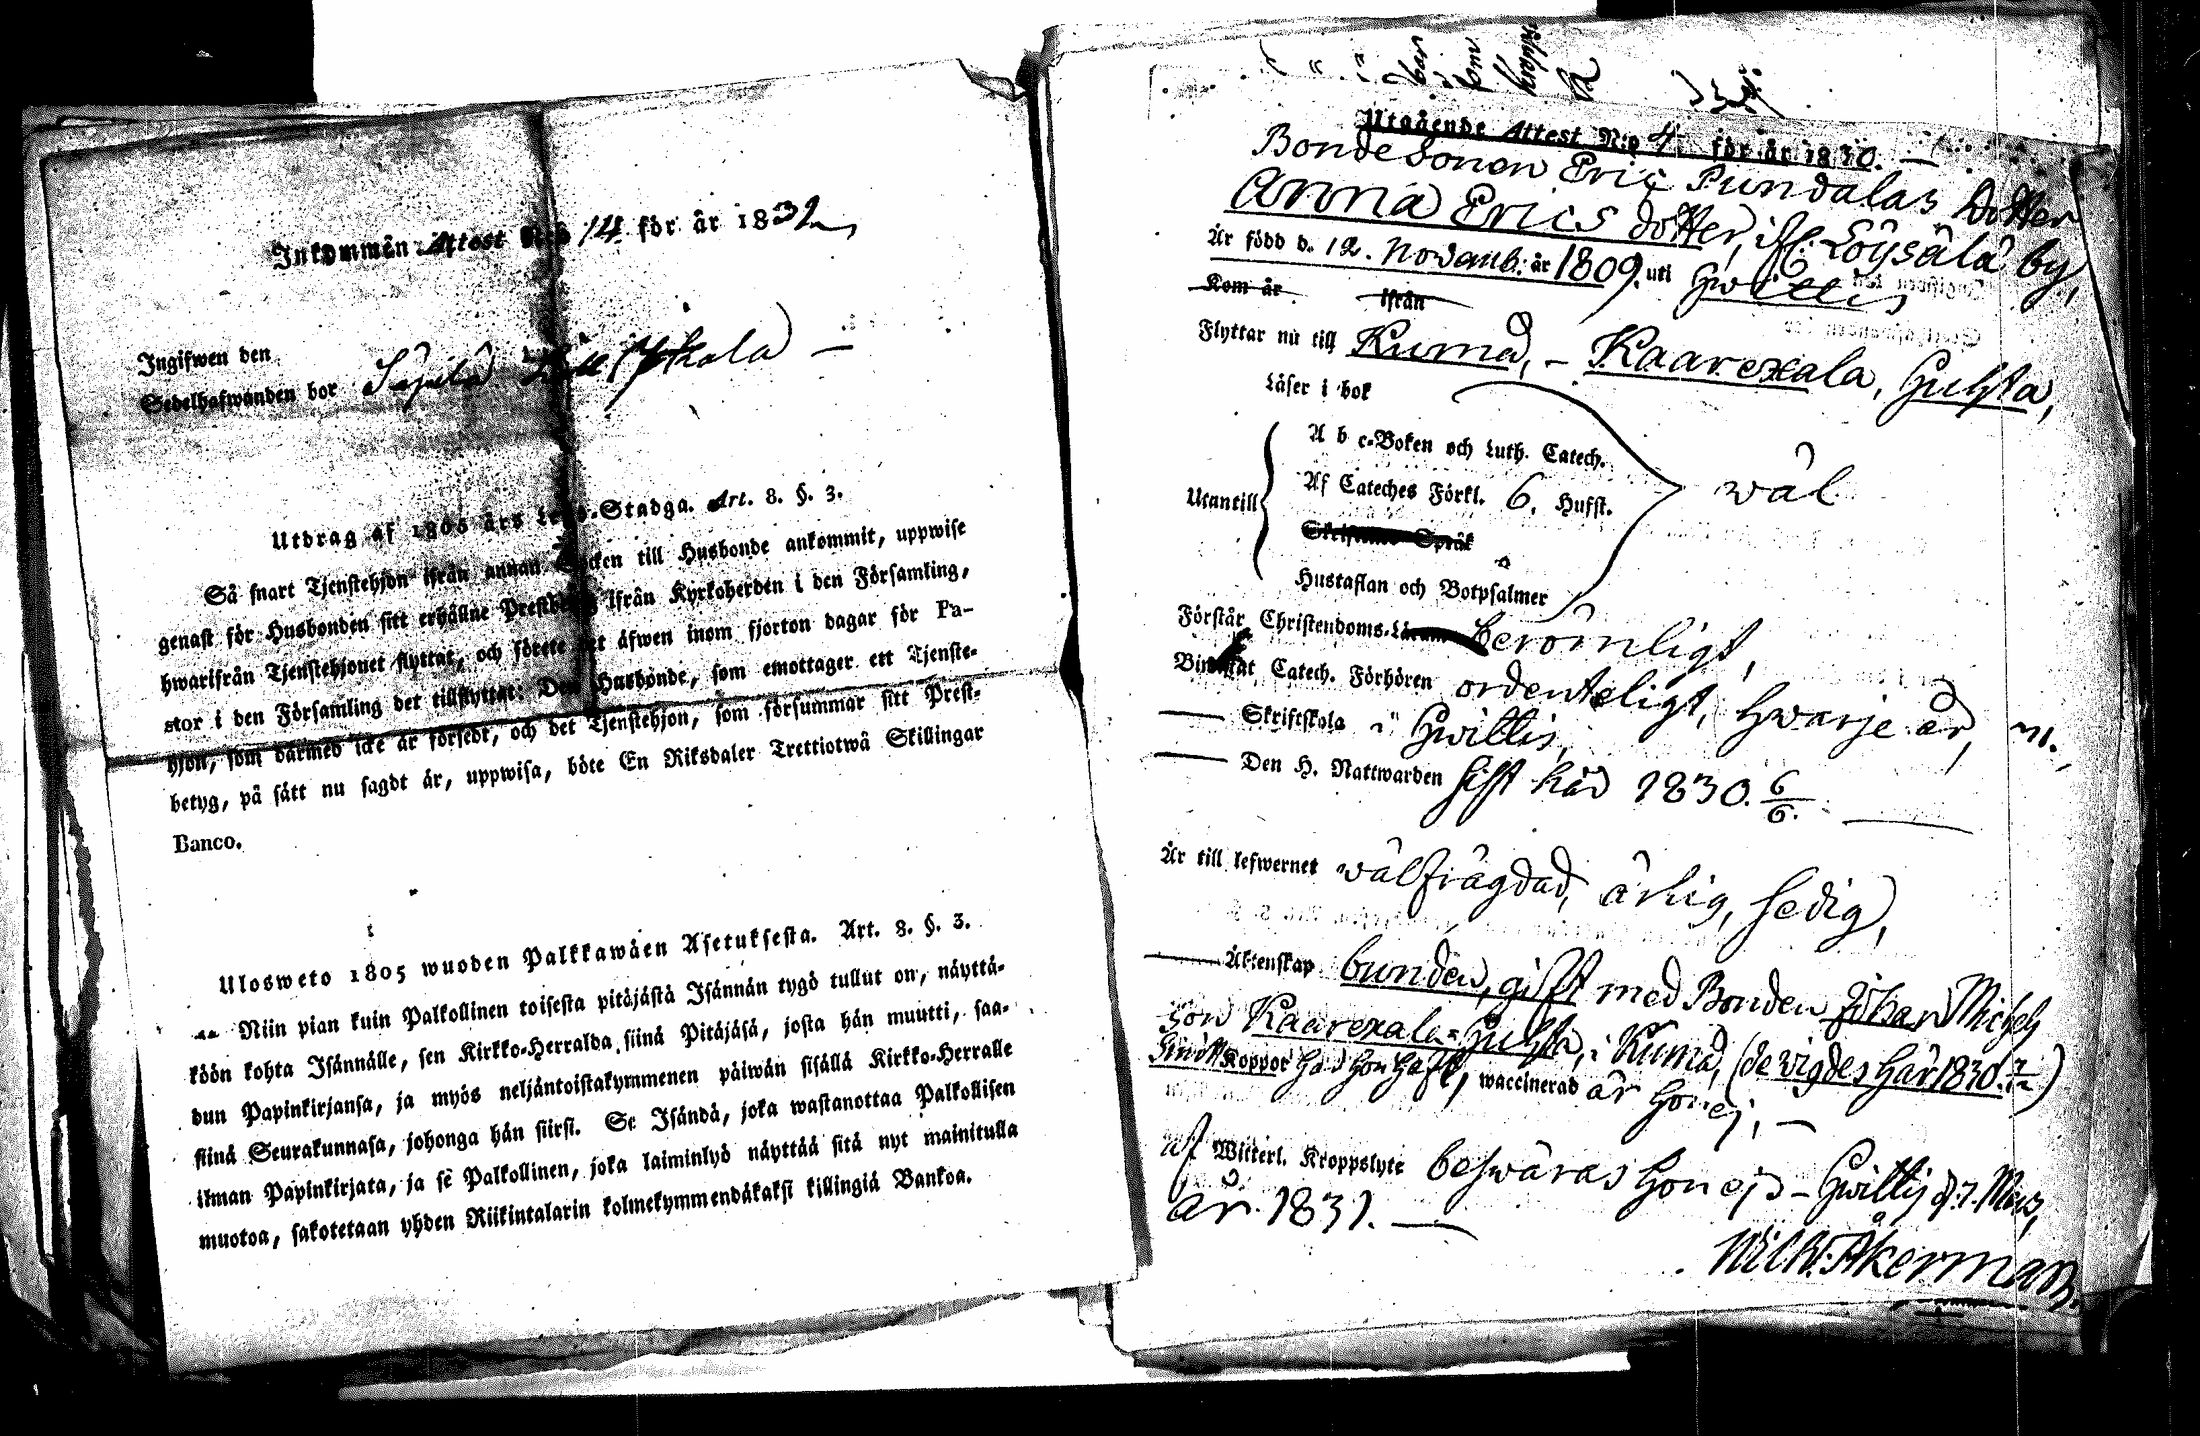 Inkommen Attest N:o 14 för år 1832
Ingifwen den
Sedelhafwanden bor
Utdrag af 1805 års Lego-Stadga. Art. 8. §. 3.
Så snart Tjenstehjon ifrån annan Socken till Husbonde ankommit, uppwise
genast för Husbonden sitt erhållne Prestbetyg ifrån Kyrkoherden i den Församling,
hwarifrån Tjenstehjonet flyttat, och förete det äfwen inom fjorton dagar för Pa-
stor i den Församling det tillflyttat: Den Husbonde, som emottager ett Tjenste-
hjon, som dårmed icke år försedt, och det Tjenstehjon, som försummar sitt Prest-
betyg, på sått nu sagdt år, uppwisa, böte En Riksdaler Trettiotwå Skillingar
Banco.
Ulosweto 1805 wuoden Palkkawåen Asetuksesta. Art. 8. §. 3.
Niin pian kuin Palkollinen toisesta pitåjåstå Isånnån tygö tullut on, nåyttå-
köön kohta Isånnålle, sen Kirkko-Herralda siinå Pitåjåså, josta hån muutti, saa-
dun Papinkirjansa, ja myös neljåntoistakymmenen påiwån sisållå Kirkko-Herralle
siinå Seurakunnasa, johonga hån siirsi. Se Isåndå, joka wastanottaa Palkollisen
ilman Papinkirjata, ja se Palkollinen, joka laiminlyö nåyttåå sitå nyt mainitulla
muotoa, sakotetaan yhden Riikintalarin kolmekymmendåkaksi killingiå Bankoa.
Utgående Attest N:o 4 för år 1830.
Bondesonen Eric Pundalas Dotter
Anna Erics dotter, ifr. Löysälä by,
Är född d. 12. Novemb. år 1809. uti Hwittis
Kom år ifrån
Flyttar nu till Kumå, - Kaarexala, Huhta,
Läser i bok
A b c-Boken och Luth. Catech.
Utantill Af Cateches Förkl. 6. Hufst. wäl
Skriftenes Språk
Hustaflan och Botpsalmer
Förstår Christendoms-Läran berömligt,
Biwistat Catech. Förhören ordenteligt, hwarje år,
Skriftskola i Hwittis,
Den H. Nattwarden sist här 1830. 6/6.
Är till lefwernet wälfrägdad, ärlig, sedig,
Äktenskap bunden, gift med Bonden Johan Michels
son Kaarexala-Huhta, i Kumå, (de vigdes här 1830.
Koppor had hon haft, waccinerad är hon ej, -
af Witterl. Kroppslyte beswäras hon ej - Hwittis d. 7. Mars,
år 1831.
Wilh. Åkerman.